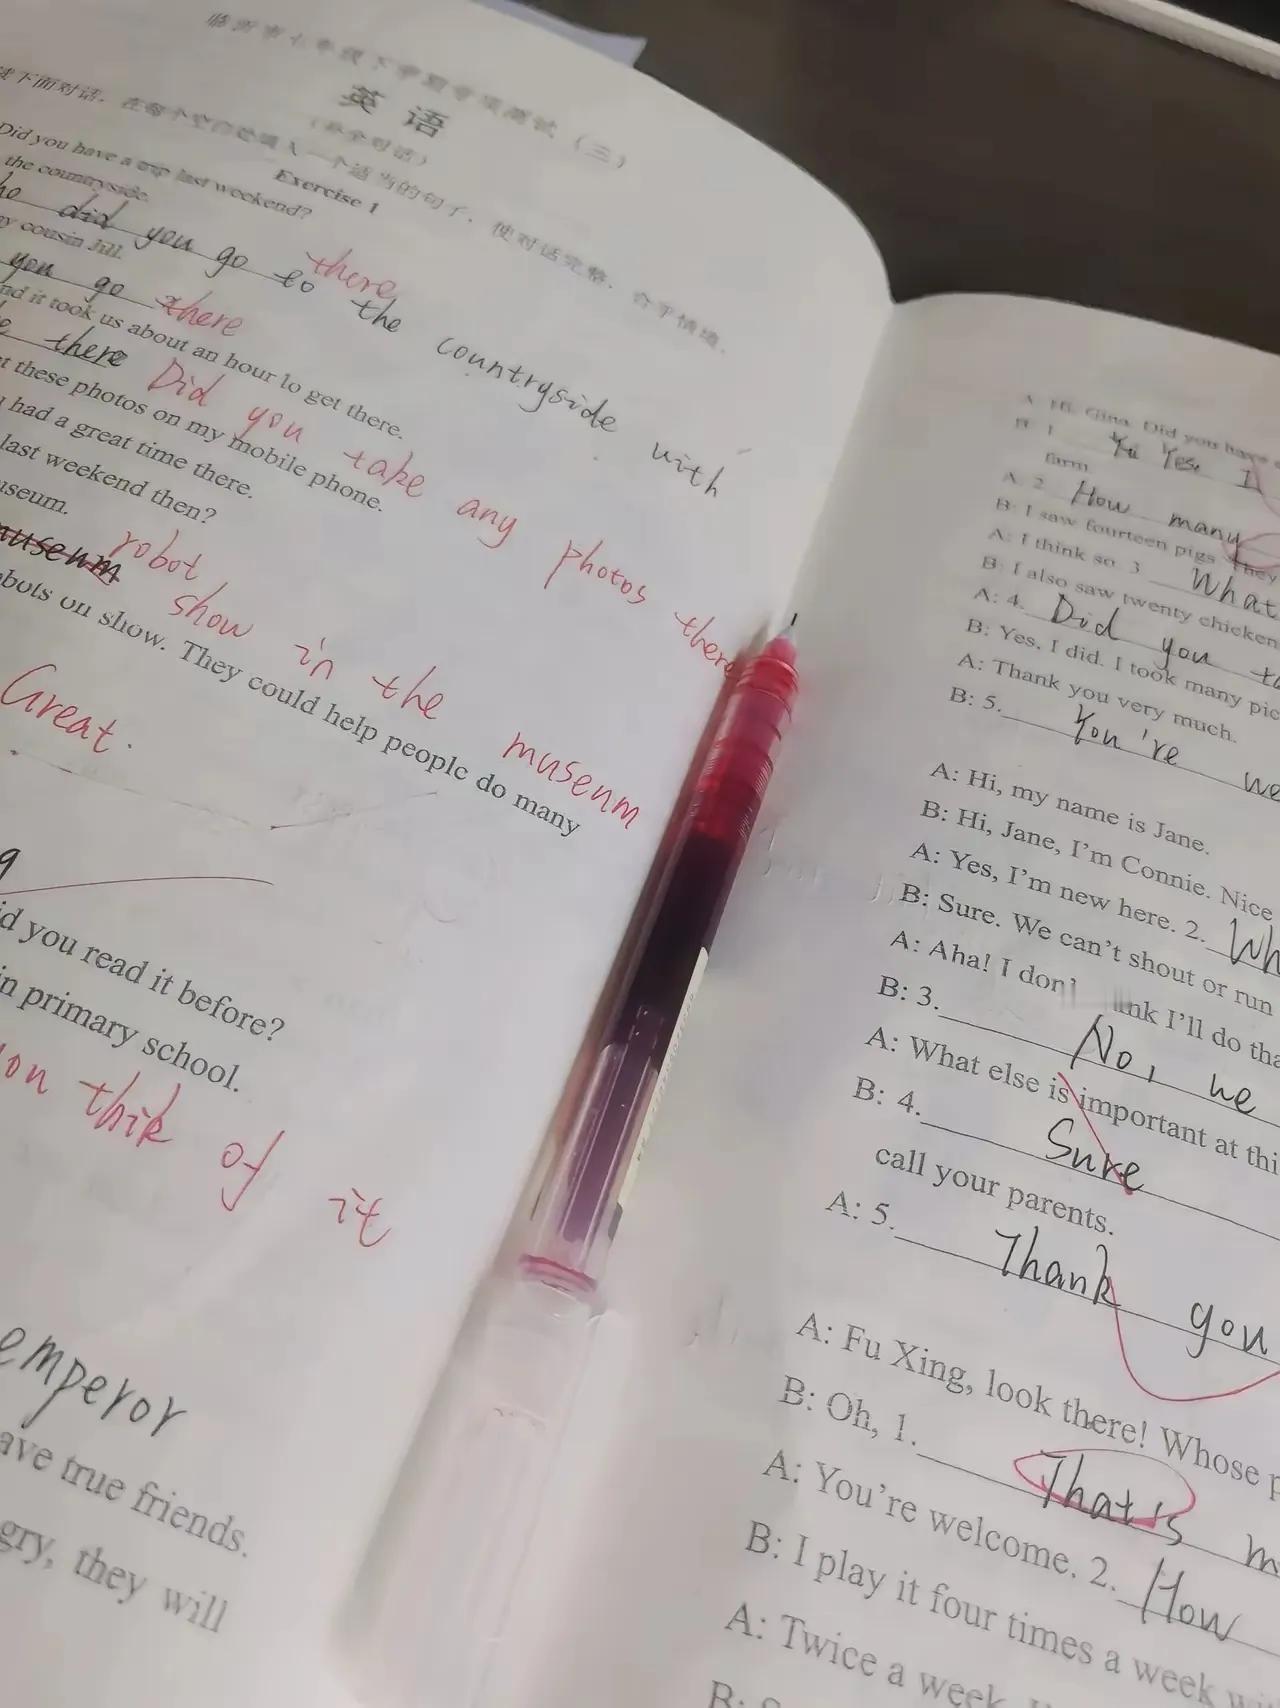 临沂市七年级下学期专项测试（三）
英语
（补全对话）
下面对话，在每个空白处填入一个适当的句子，使对话完整、合乎情境。
Exercise 1
Did you have a trip last weekend?
the countryside.
did you go to there the countryside with
cousin Jill.
you go there
it took us about an hour to get there.
there Did you take any photos there
these photos on my mobile phone.
had a great time there.
last weekend then?
robot show in the museum
on show. They could help people do many
Great.
you read it before?
in primary school.
thik of it
emperor
true friends.
they will
A: Hi, Gina. Did you have
B: 1. Yes, I
farm
A: 2. How many
B: I saw fourteen pigs. They
A: I think so. 3. What
B: I also saw twenty chicken
A: 4. Did you
B: Yes, I did. I took many
A: Thank you very much.
B: 5. You're
A: Hi, my name is Jane.
B: Hi, Jane, I'm Connie. Nice
A: Yes, I'm new here. 2.
B: Sure. We can't shout or run
A: Aha! I I'll do
B: 3. No, we
A: What else is important at
B: 4. Sure
call your parents.
A: 5. Thank you
A: Fu Xing, look there! Whose
B: Oh, 1. That's
A: You're welcome. 2. How
B: I play it four times a week
A: Twice a week.
B: